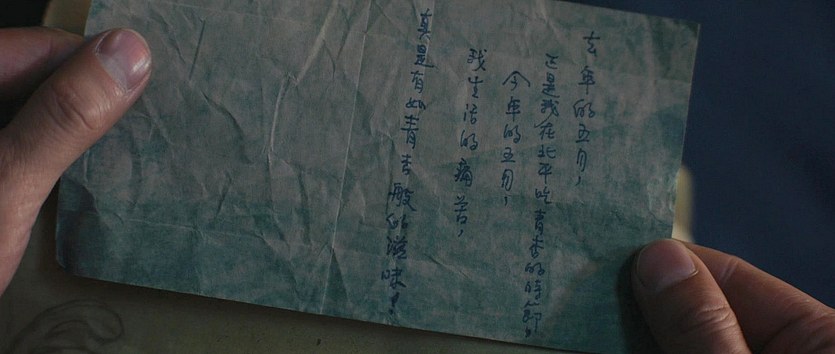 去年的五月，
正是我在北平吃青杏的時節，
今年的五月，
我生活的痛苦，
真是有如青杏般的滋味！